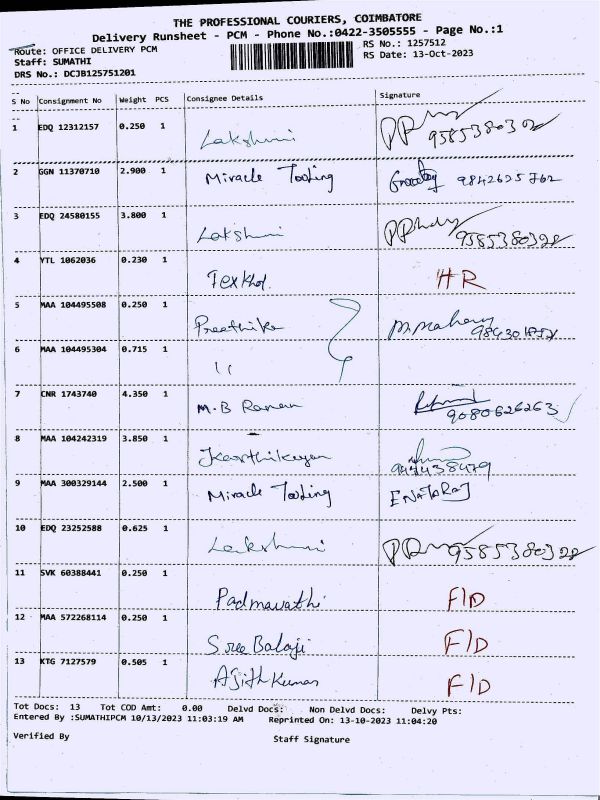 THE PROFESSIONAL COURIERS, COIMBATORE
Delivery Runsheet - PCM - Phone No.:0422-3505555 - Page No.:1
Route: OFFICE DELIVERY PCM RS No.: 1257512
Staff: SUMATHI RS Date: 13-Oct-2023
DRS No.: DCJB125751201
S No Consignment No Weight PCS Consignee Details Signature
1 EDQ 12312157 0.250 1 Lakshmi 9585380302
2 GGN 11370710 2.900 1 Miracle Tooling 9842625762
3 EDQ 24580155 3.800 1 Lakshmi 9585380328
4 YTL 1062036 0.230 1 Texkhol HR
5 MAA 104495508 0.250 1 Preethika
6 MAA 104495304 0.715 1 "
7 CNR 1743740 4.350 1 M.B Raman 9080626263
8 MAA 104242319 3.850 1 Karthikeyan
9 MAA 300329144 2.500 1 Miracle Tooling ENATARAJ
10 EDQ 23252588 0.625 1 Lakshmi 9585380328
11 SVK 60388441 0.250 1 Padmavathi F/D
12 MAA 572268114 0.250 1 Sree Balaji F/D
13 KTG 7127579 0.505 1 Ajith Kumar F/D
Tot Docs: 13 Tot COD Amt: 0.00 Delvd Docs: Non Delvd Docs: Delvy Pts:
Entered By :SUMATHIPCM 10/13/2023 11:03:19 AM Reprinted On: 13-10-2023 11:04:20
Verified By Staff Signature